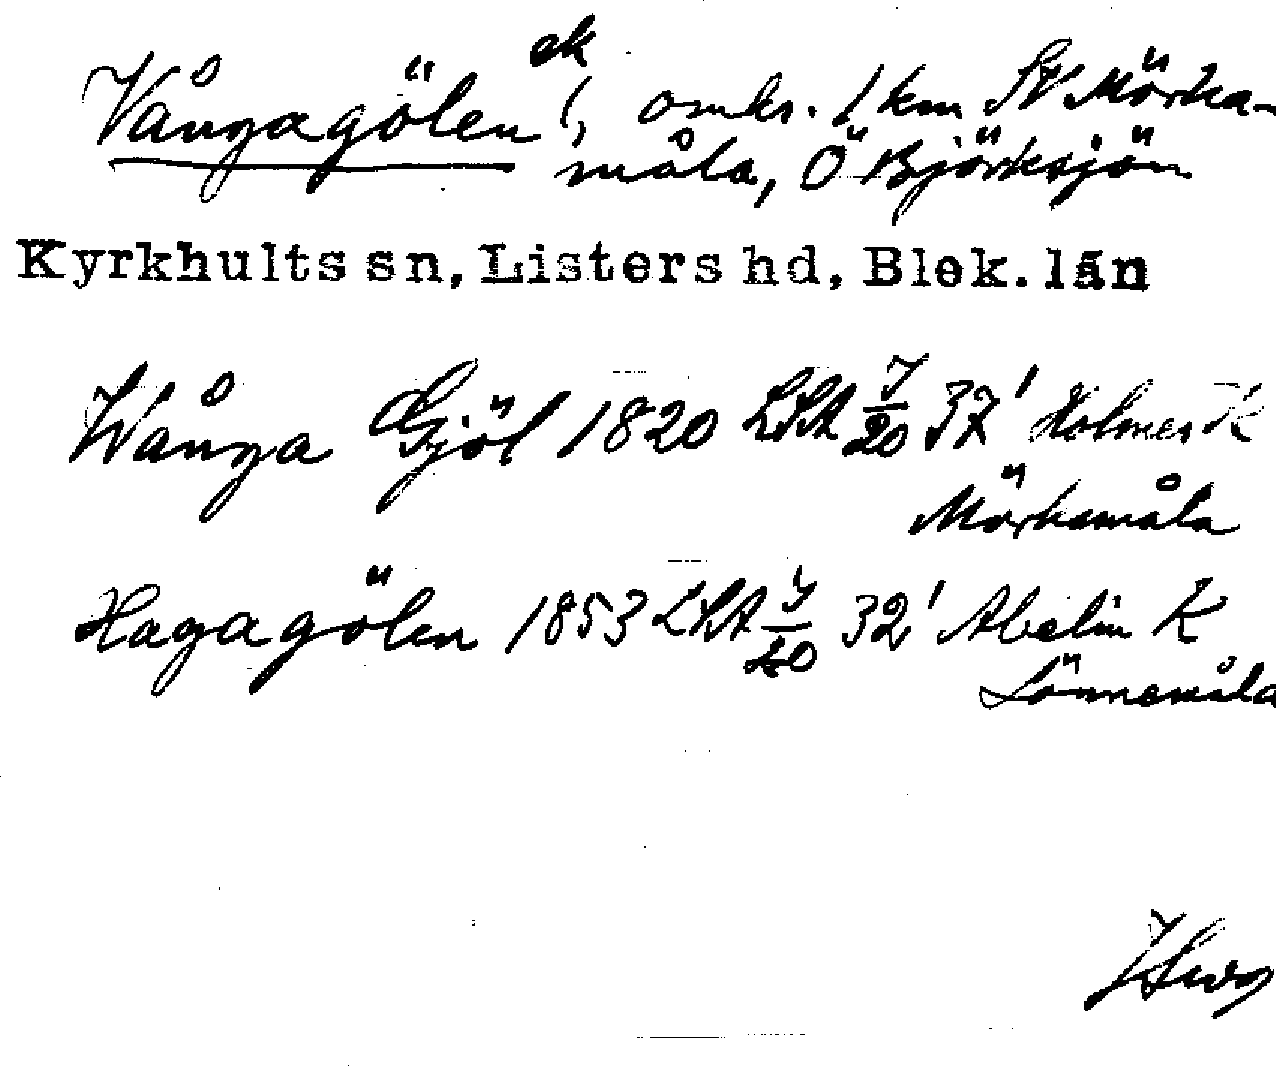 ek
Vångagölen (, omkr. 1 km SV Mörka-
måla, Ö Björksjön
Kyrkhults sn, Listers hd, Blek. län
Wånga Gjöl 1820 LSA J/20 37' Holmer K
Mörkamåla
Hagagölen 1853 LSA J/20 32' Abelin K
Lönnemåla